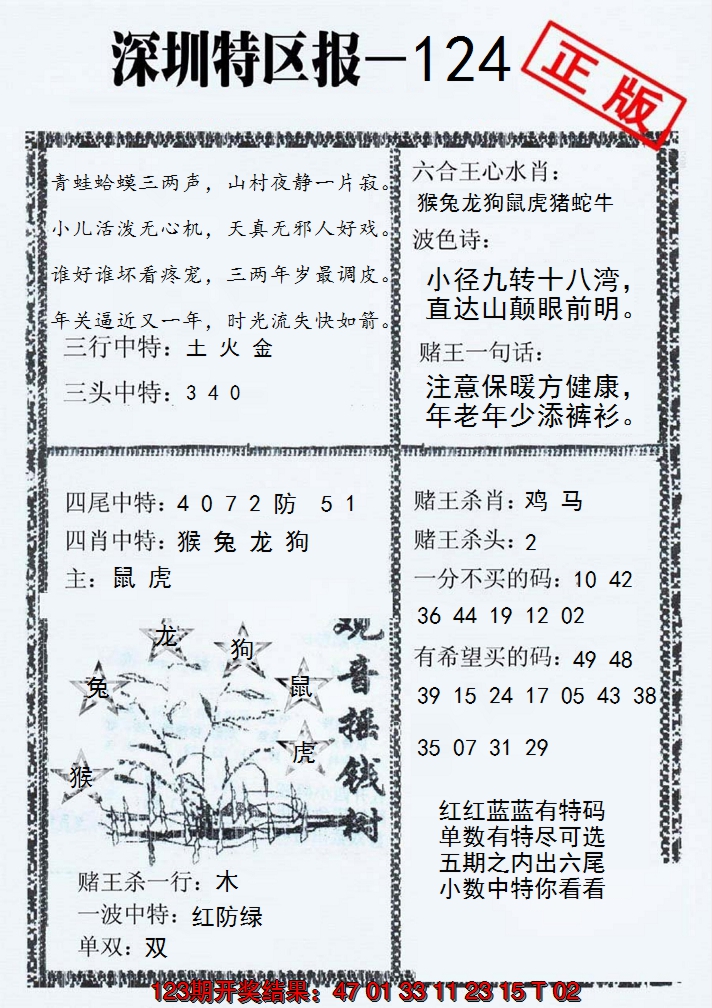 深圳特区报－124
正版
青蛙蛤蟆三两声，山村夜静一片寂。
小儿活泼无心机，天真无邪人好戏。
谁好谁坏看疼宠，三两年岁最调皮。
年关逼近又一年，时光流失快如箭。
三行中特：土 火 金
三头中特：3 4 0
六合王心水肖：
猴兔龙狗鼠虎猪蛇牛
波色诗：
小径九转十八湾，
直达山颠眼前明。
赌王一句话：
注意保暖方健康，
年老年少添裤衫。
四尾中特：4 0 7 2 防 5 1
四肖中特：猴 兔 龙 狗
主：鼠 虎
龙
狗
兔
鼠
虎
猴
观音摇钱树
赌王杀一行：木
一波中特：红防绿
单双：双
赌王杀肖：鸡 马
赌王杀头：2
一分不买的码：10 42
36 44 19 12 02
有希望买的码：49 48
39 15 24 17 05 43 38
35 07 31 29
红红蓝蓝有特码
单数有特尽可选
五期之内出六尾
小数中特你看看
123期开奖结果：47 01 33 11 23 15 T 02